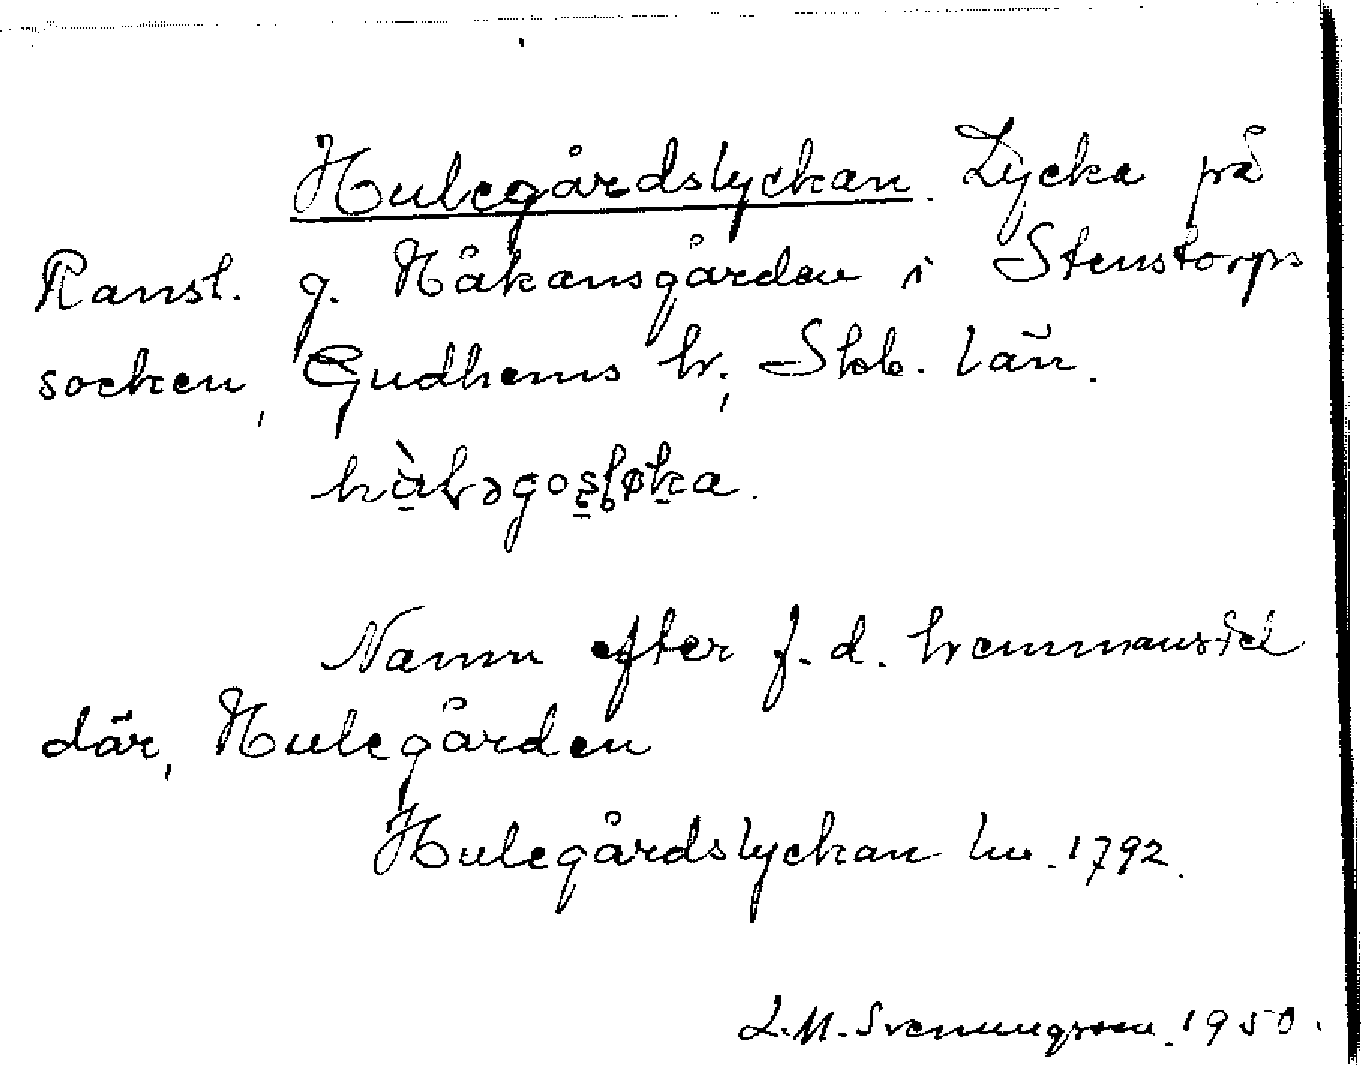 Hulegårdslyckan. Lycka på
Ransl. g. Håkansgården i Stenstorps
socken, Gudhems hr, Skb. län.
Namn efter f.d. hemmansdel
där, Hulegården
Hulegårdslyckan hu. 1792.
L.M. Svenungsson. 1950.